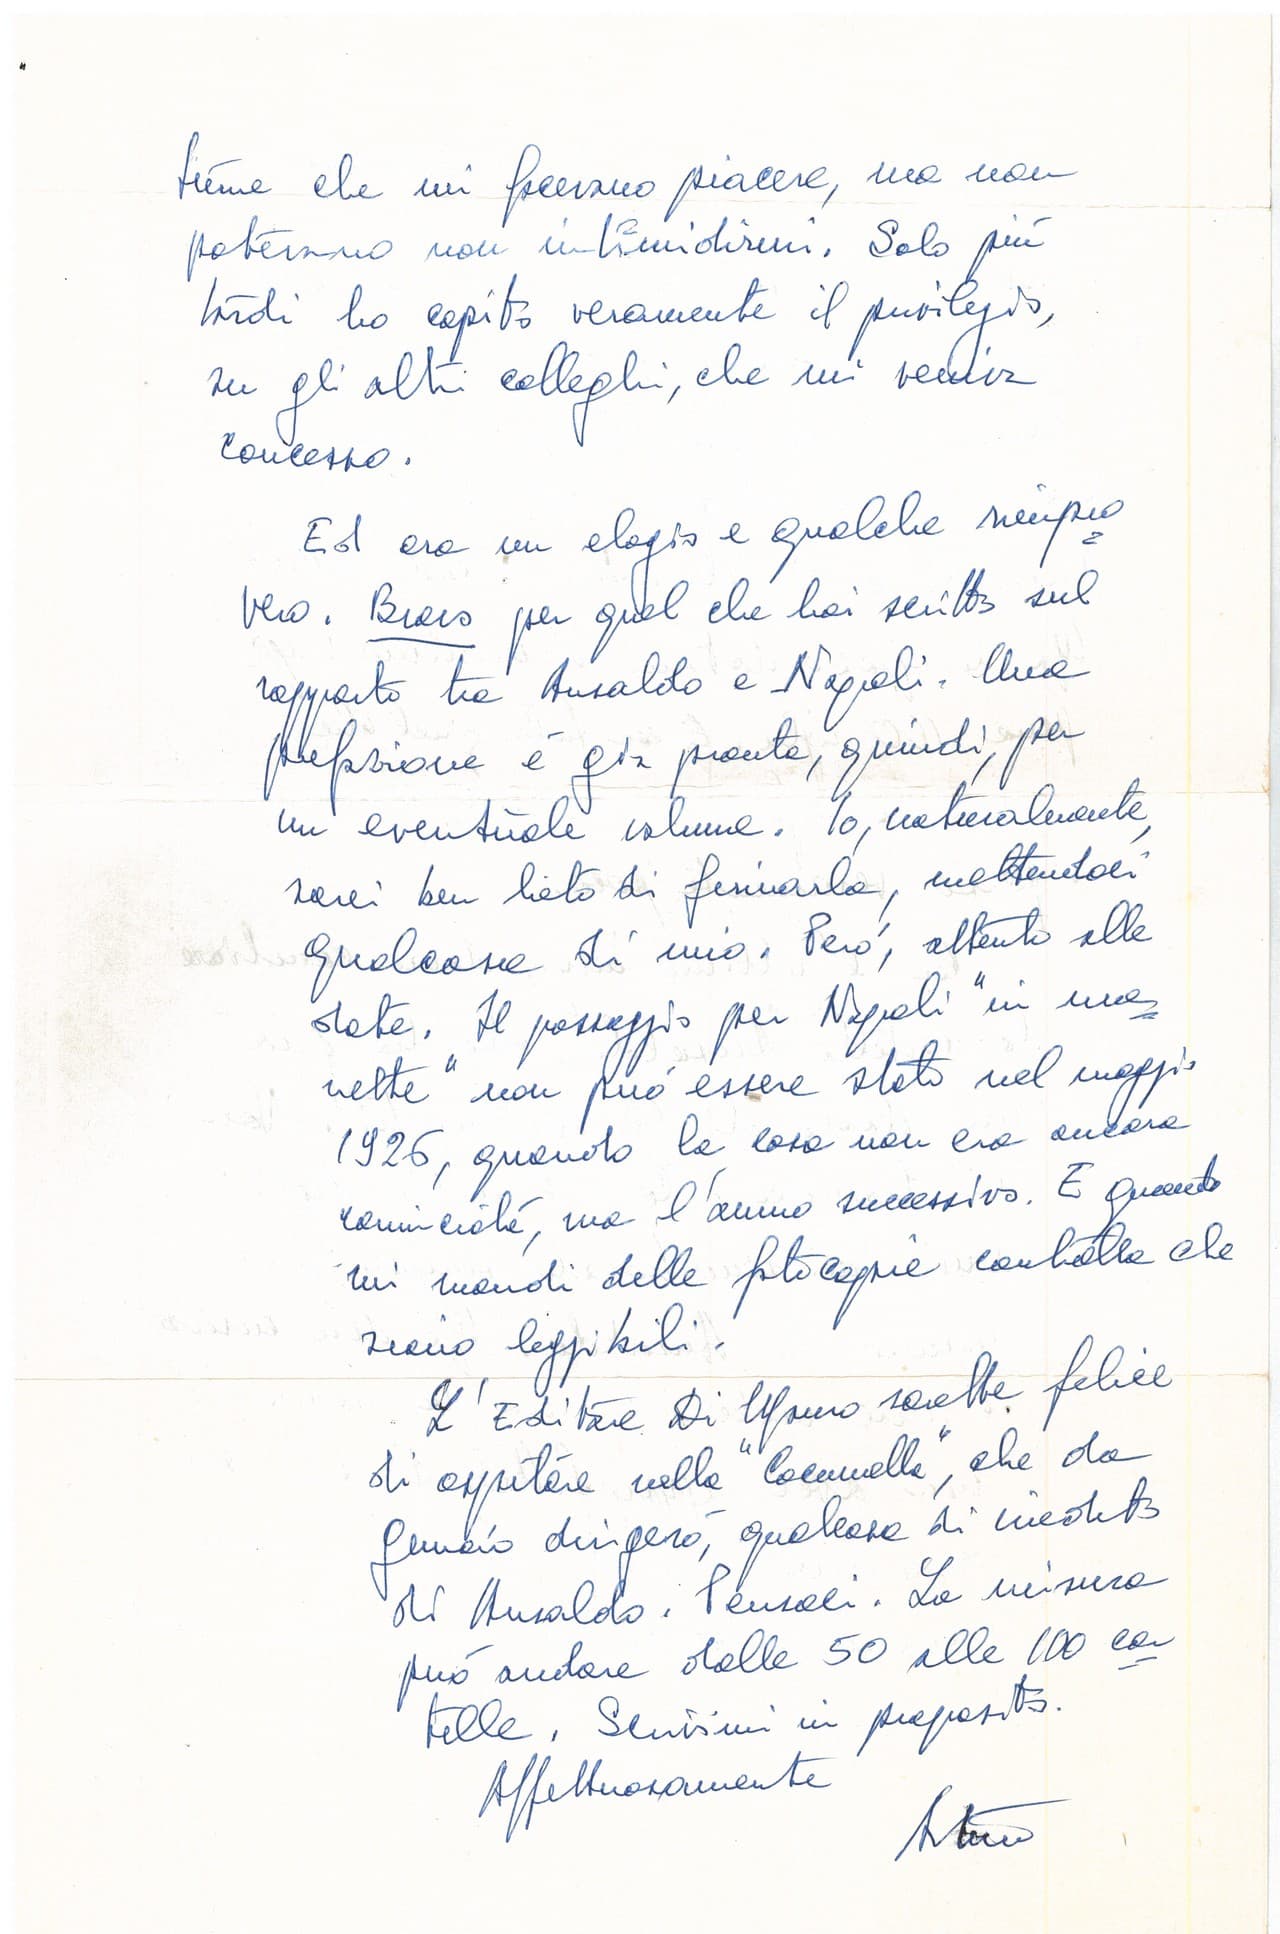 stime che mi facevano piacere, ma non
potevano non intimidirmi. Solo più
tardi ho capito veramente il privilegio,
su gli altri colleghi, che mi veniva
concesso.
Ed ora un elogio e qualche rimpro
vero. Bravo per quel che hai scritto sul
rapporto tra Ansaldo e Napoli. Una
prefazione è già pronta, quindi, per
un eventuale volume. Io, naturalmente,
sarei ben lieto di firmarla, mettendoci
qualcosa di mio. Però, attento alle
date. Il passaggio per Napoli "in ma
nette" non può essere stato nel maggio
1926, quando la cosa non era ancora
cominciata, ma l'anno successivo. E quando
mi mandi delle fotocopie controlla che
siano leggibili.
L'Editore Di Mauro sarebbe felice
di ospitare nella "Cocumella", che da
Gennaio dirigerò, qualcosa di inedito
di Ansaldo. Pensaci. La misura
può andare dalle 50 alle 100 car
telle. Scrivimi in proposito.
Affettuosamente
Arturo